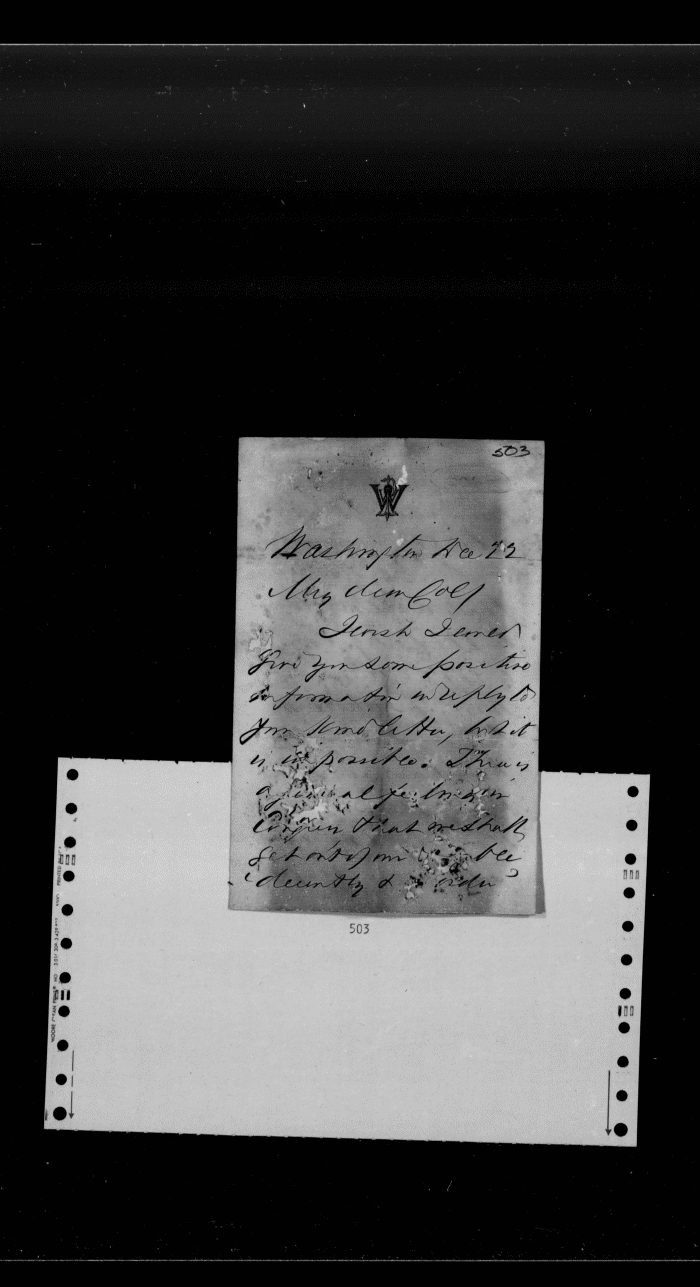 503
W
Washington Dec 22
My dear Col
I wish I could
give you some positive
information in reply to
your kind letter, but it
is impossible. There is
a general feeling in
Congress that we shall
get out of our trouble
"decently & in order"
503